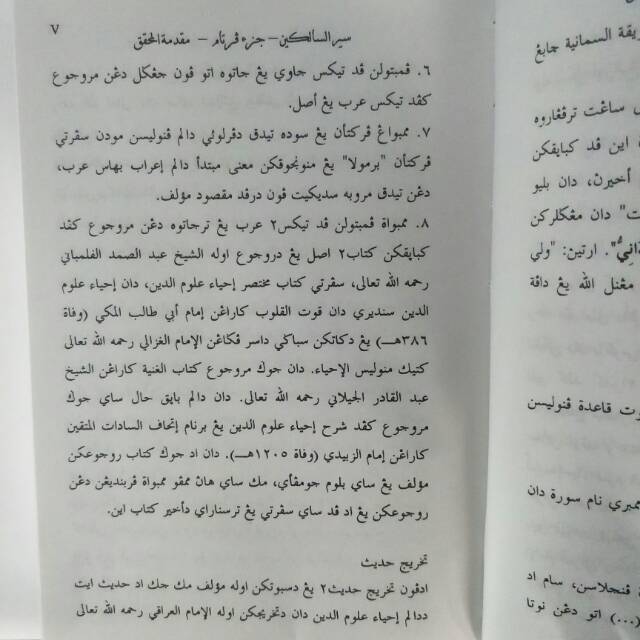 سير السالكين – جزء ڤرتام – مقدمة المحقق
٧
٦. ڤمبتولن ڤد تيكس جاوي يڠ جاتوه اتو ڤون جڠكل دڠن مروجوع
كڤد تيكس عرب يڠ أصل.
٧. ممبواڠ ڤركتأن يڠ سوده تيدق دڤرلولي دالم ڤنوليسن مودن سڤرتي
ڤركتأن "برمولا" يڠ منونجوقكن معنى مبتدأ دالم إعراب بهاس عرب،
دڠن تيدق مروبه سديكيت ڤون درڤد مقصود مؤلف.
٨. ممبواة ڤمبتولن ڤد تيكس٢ عرب يڠ ترجاتوه دڠن مروجوع كڤد
كبايقكن كتاب٢ اصل يڠ دروجوع اوله الشيخ عبد الصمد الفلمباني
رحمه الله تعالى، سڤرتي كتاب مختصر إحياء علوم الدين، دان إحياء علوم
الدين سنديري دان قوت القلوب كاراڠن إمام أبي طالب المكي (وفاة
٣٨٦هـ) يڠ دكاتكن سباكي داسر ڤڬاڠن الإمام الغزالي رحمه الله تعالى
كتيك منوليس الإحياء. دان جوك مروجوع كتاب الغنية كاراڠن الشيخ
عبد القادر الجيلاني رحمه الله تعالى. دان دالم بايق حال ساي جوك
مروجوع كڤد شرح إحياء علوم الدين يڠ برنام إتحاف السادات المتقين
كاراڠن إمام الزبيدي (وفاة ١٢٠٥هـ). دان اد جوك كتاب روجوعكن
مؤلف يڠ ساي بلوم جومڤأي، مك ساي هاڽ ممڤو ممبواة ڤربنديڠن دڠن
روجوعكن يڠ اد ڤد ساي سڤرتي يڠ ترسناراي دأخير كتاب اين.
تخريج حديث
ادڤون تخريج حديث٢ يڠ دسبوتكن اوله مؤلف مك جك اد حديث ايت
ددالم إحياء علوم الدين دان دتخريجكن اوله الإمام العراقي رحمه الله تعالى
ريقة السمانية جابڠ
س ساعت ترڤڠاروه
ة اين ڤد كبايقكن
أخيرن، دان بليو
ت" دان مڠكلركن
ارتين: "ولي
مڠنل الله يڠ داڤة
وت قاعدة ڤنوليسن
ممبري نام سورة دان
ڤنجلاسن، سام اد
(...) اتو دڠن نوتا